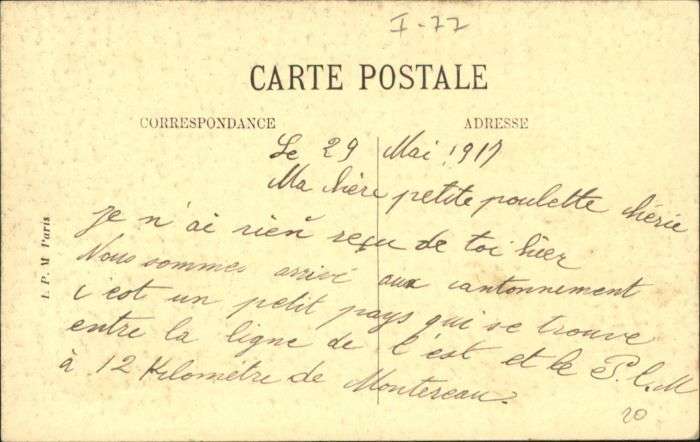 I-77
CARTE POSTALE
CORRESPONDANCE
ADRESSE
Le 29 Mai 1917
Ma chère petite poulette chérie
Je n'ai rien reçu de toi hier
Nous sommes arrivé aux cantonnement
c'est un petit pays qui se trouve
entre la ligne de l'est et le P.L.M
à 12 Kilomètre de Montereau.
I. P. M Paris
20